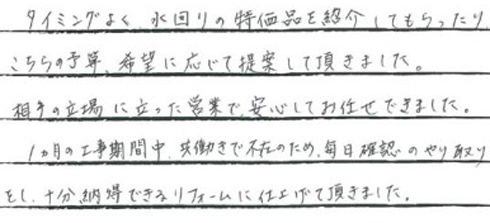 タイミングよく、水回りの特価品を紹介してもらったり
こちらの予算、希望に応じて提案して頂きました。
相手の立場に立った営業で、安心してお任せできました。
1ヵ月の工事期間中、共働きで不在のため、毎日確認のやり取り
をし、十分納得できるリフォームに仕上げて頂きました。